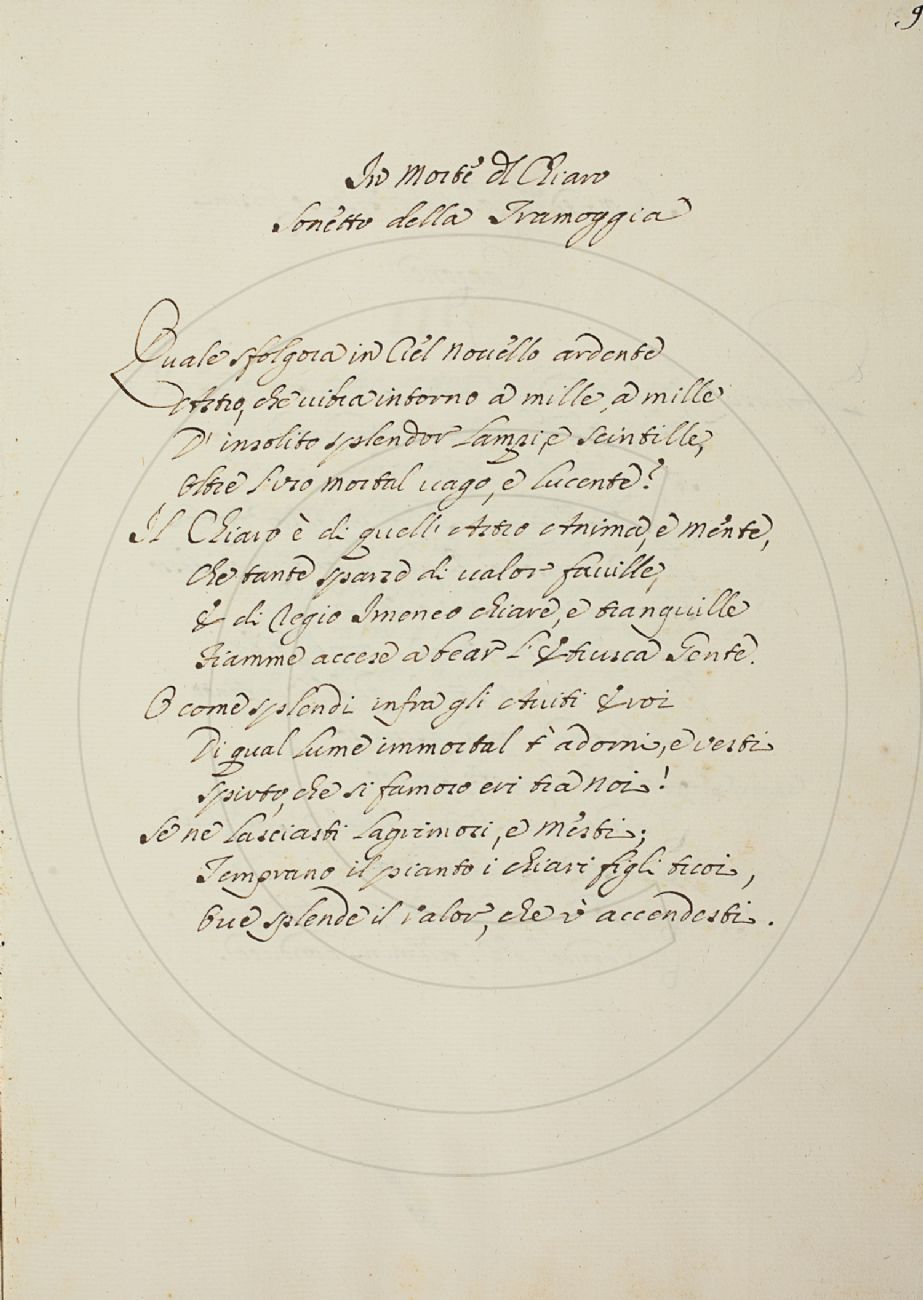 9
In Morte dl Chiaro
Sonetto della Tramoggia
Quale sfolgora in Ciel nouello ardente
Astro, che uibra intorno a mille, a mille
D' insolito splendor Lampi, e scintille,
Oltre l'uso mortal uago, e lucente?
Il Chiaro è di quell' Astro Anima, e mente,
Che tante sparse di ualor fauille,
E di Regio Imeneo chiare, e tranquille
Fiamme accese a bear l'Etrusca Gente.
O come splendi infra gli Auiti Eroi
Di qual lume immortal t' adorni, e vesti
Spirto, che si famoso eri tra noi!
Se ne lasciasti lagrimosi, e mesti;
Temprano il pianto i chiari figli tuoi,
Oue splende il valor, che v' accendesti.